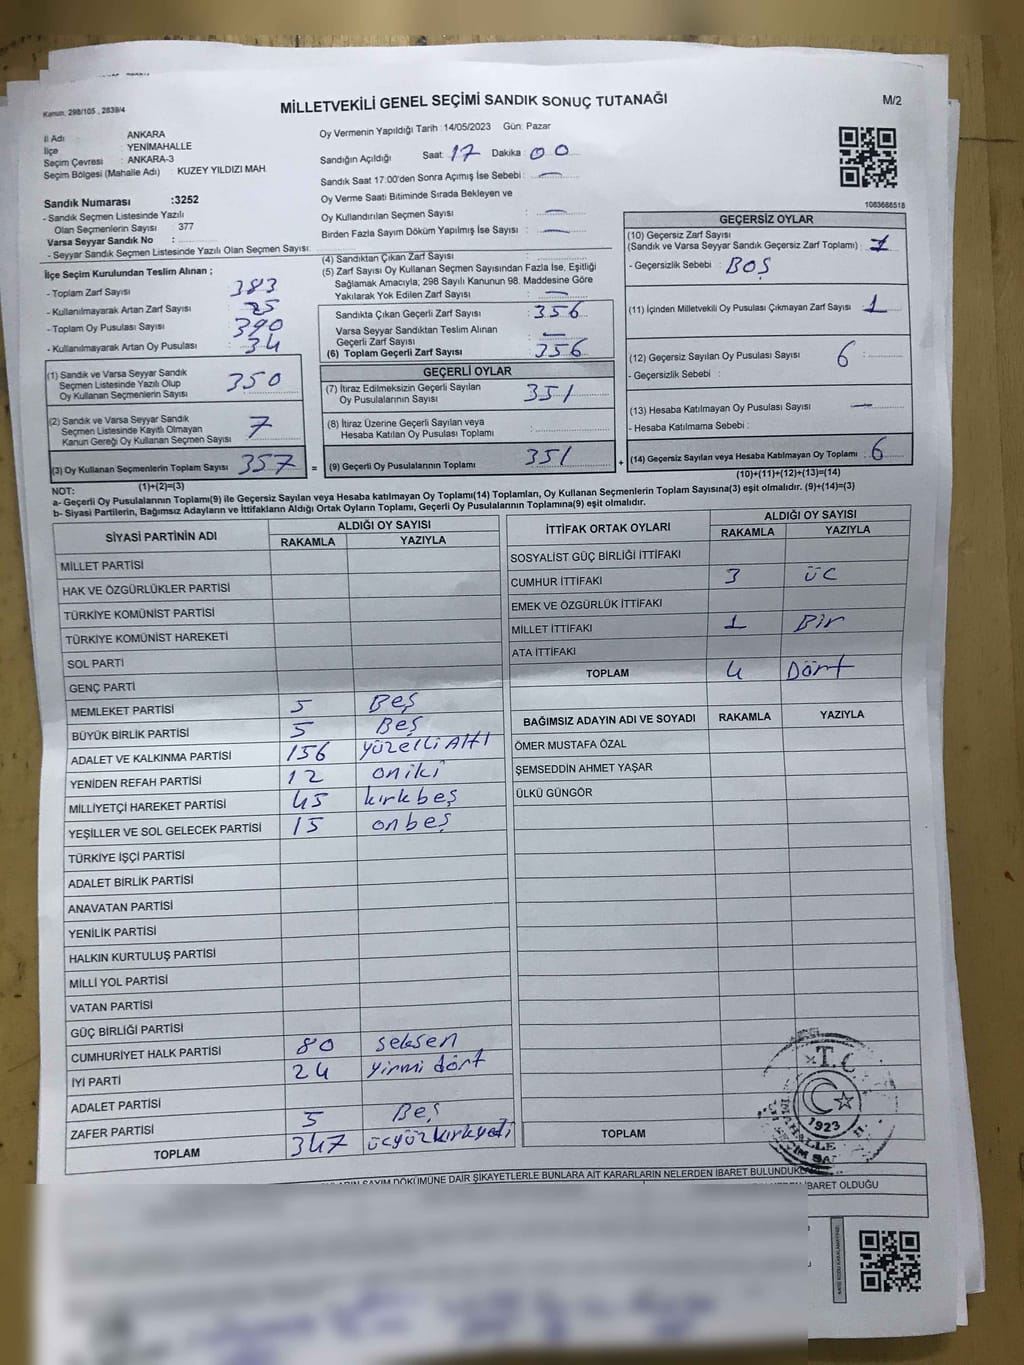 Kanun; 298/105 , 2839/4
MİLLETVEKİLİ GENEL SEÇİMİ SANDIK SONUÇ TUTANAĞI
M/2
İl Adı : ANKARA
İlçe : YENİMAHALLE
Seçim Çevresi : ANKARA-3
Seçim Bölgesi (Mahalle Adı) : KUZEY YILDIZI MAH.
Sandık Numarası :3252
- Sandık Seçmen Listesinde Yazılı
Olan Seçmenlerin Sayısı : 377
Varsa Seyyar Sandık No :
- Seyyar Sandık Seçmen Listesinde Yazılı Olan Seçmen Sayısı:
Oy Vermenin Yapıldığı Tarih :14/05/2023 Gün: Pazar
Sandığın Açıldığı Saat: 17 Dakika: 00
Sandık Saat 17:00'den Sonra Açımış İse Sebebi : —
Oy Verme Saati Bitiminde Sırada Bekleyen ve
Oy Kullandırılan Seçmen Sayısı : —
Birden Fazla Sayım Döküm Yapılmış İse Sayısı : —
1083688518
İlçe Seçim Kurulundan Teslim Alınan ;
- Toplam Zarf Sayısı : 383
- Kullanılmayarak Artan Zarf Sayısı : 25
- Toplam Oy Pusulası Sayısı : 390
- Kullanılmayarak Artan Oy Pusulası : 34
(1) Sandık ve Varsa Seyyar Sandık
Seçmen Listesinde Yazılı Olup
Oy Kullanan Seçmenlerin Sayısı : 350
(2) Sandık ve Varsa Seyyar Sandık
Seçmen Listesinde Kayıtlı Olmayan
Kanun Gereği Oy Kullanan Seçmen Sayısı : 7
(3) Oy Kullanan Seçmenlerin Toplam Sayısı 357 =
(1)+(2)=(3)
(4) Sandıktan Çıkan Zarf Sayısı :
(5) Zarf Sayısı Oy Kullanan Seçmen Sayısından Fazla İse, Eşitliği
Sağlamak Amacıyla; 298 Sayılı Kanunun 98. Maddesine Göre
Yakılarak Yok Edilen Zarf Sayısı : —
Sandıkta Çıkan Geçerli Zarf Sayısı : 356
Varsa Seyyar Sandıktan Teslim Alınan
Geçerli Zarf Sayısı : —
(6) Toplam Geçerli Zarf Sayısı : 356
GEÇERLİ OYLAR
(7) İtiraz Edilmeksizin Geçerli Sayılan
Oy Pusulalarının Sayısı : 351
(8) İtiraz Üzerine Geçerli Sayılan veya
Hesaba Katılan Oy Pusulası Toplamı :
(9) Geçerli Oy Pusulalarının Toplamı : 351 +
GEÇERSİZ OYLAR
(10) Geçersiz Zarf Sayısı
(Sandık ve Varsa Seyyar Sandık Geçersiz Zarf Toplamı) : 1
- Geçersizlik Sebebi : BOŞ
(11) İçinden Milletvekili Oy Pusulası Çıkmayan Zarf Sayısı : 1
(12) Geçersiz Sayılan Oy Pusulası Sayısı : 6
- Geçersizlik Sebebi :
(13) Hesaba Katılmayan Oy Pusulası Sayısı : —
- Hesaba Katılmama Sebebi :
(14) Geçersiz Sayılan veya Hesaba Katılmayan Oy Toplamı : 6
(10)+(11)+(12)+(13)=(14)
NOT:
a- Geçerli Oy Pusulalarının Toplamı(9) ile Geçersiz Sayılan veya Hesaba katılmayan Oy Toplamı(14) Toplamları, Oy Kullanan Seçmenlerin Toplam Sayısına(3) eşit olmalıdır. (9)+(14)=(3)
b- Siyasi Partilerin, Bağımsız Adayların ve İttifakların Aldığı Ortak Oyların Toplamı, Geçerli Oy Pusulalarının Toplamına(9) eşit olmalıdır.
SİYASİ PARTİNİN ADI ALDIĞI OY SAYISI
RAKAMLA YAZIYLA
MİLLET PARTİSİ
HAK VE ÖZGÜRLÜKLER PARTİSİ
TÜRKİYE KOMÜNİST PARTİSİ
TÜRKİYE KOMÜNİST HAREKETİ
SOL PARTİ
GENÇ PARTİ
MEMLEKET PARTİSİ 5 Beş
BÜYÜK BİRLİK PARTİSİ 5 Beş
ADALET VE KALKINMA PARTİSİ 156 yüzelli Altı
YENİDEN REFAH PARTİSİ 12 oniki
MİLLİYETÇİ HAREKET PARTİSİ 45 kırkbeş
YEŞİLLER VE SOL GELECEK PARTİSİ 15 onbeş
TÜRKİYE İŞÇİ PARTİSİ
ADALET BİRLİK PARTİSİ
ANAVATAN PARTİSİ
YENİLİK PARTİSİ
HALKIN KURTULUŞ PARTİSİ
MİLLİ YOL PARTİSİ
VATAN PARTİSİ
GÜÇ BİRLİĞİ PARTİSİ
CUMHURİYET HALK PARTİSİ 80 seksen
İYİ PARTİ 24 yirmi dört
ADALET PARTİSİ
ZAFER PARTİSİ 5 Beş
TOPLAM 347 üçyüzkırkyedi
İTTİFAK ORTAK OYLARI ALDIĞI OY SAYISI
RAKAMLA YAZIYLA
SOSYALİST GÜÇ BİRLİĞİ İTTİFAKI
CUMHUR İTTİFAKI 3 ÜÇ
EMEK VE ÖZGÜRLÜK İTTİFAKI
MİLLET İTTİFAKI 1 Bir
ATA İTTİFAKI
TOPLAM 4 Dört
BAĞIMSIZ ADAYIN ADI VE SOYADI RAKAMLA YAZIYLA
ÖMER MUSTAFA ÖZAL
ŞEMSEDDİN AHMET YAŞAR
ÜLKÜ GÜNGÖR
TOPLAM
T.C.
1923
SAYIM DÖKÜMÜNE DAİR ŞİKAYETLERLE BUNLARA AİT KARARLARIN NELERDEN İBARET BULUNDUKLARI
İBARET OLDUĞU